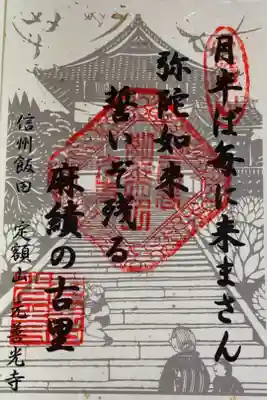 月半は毎に来まさん
弥陀如来
誓いぞ残る
麻績の古里
信州飯田 定額山 元善光寺